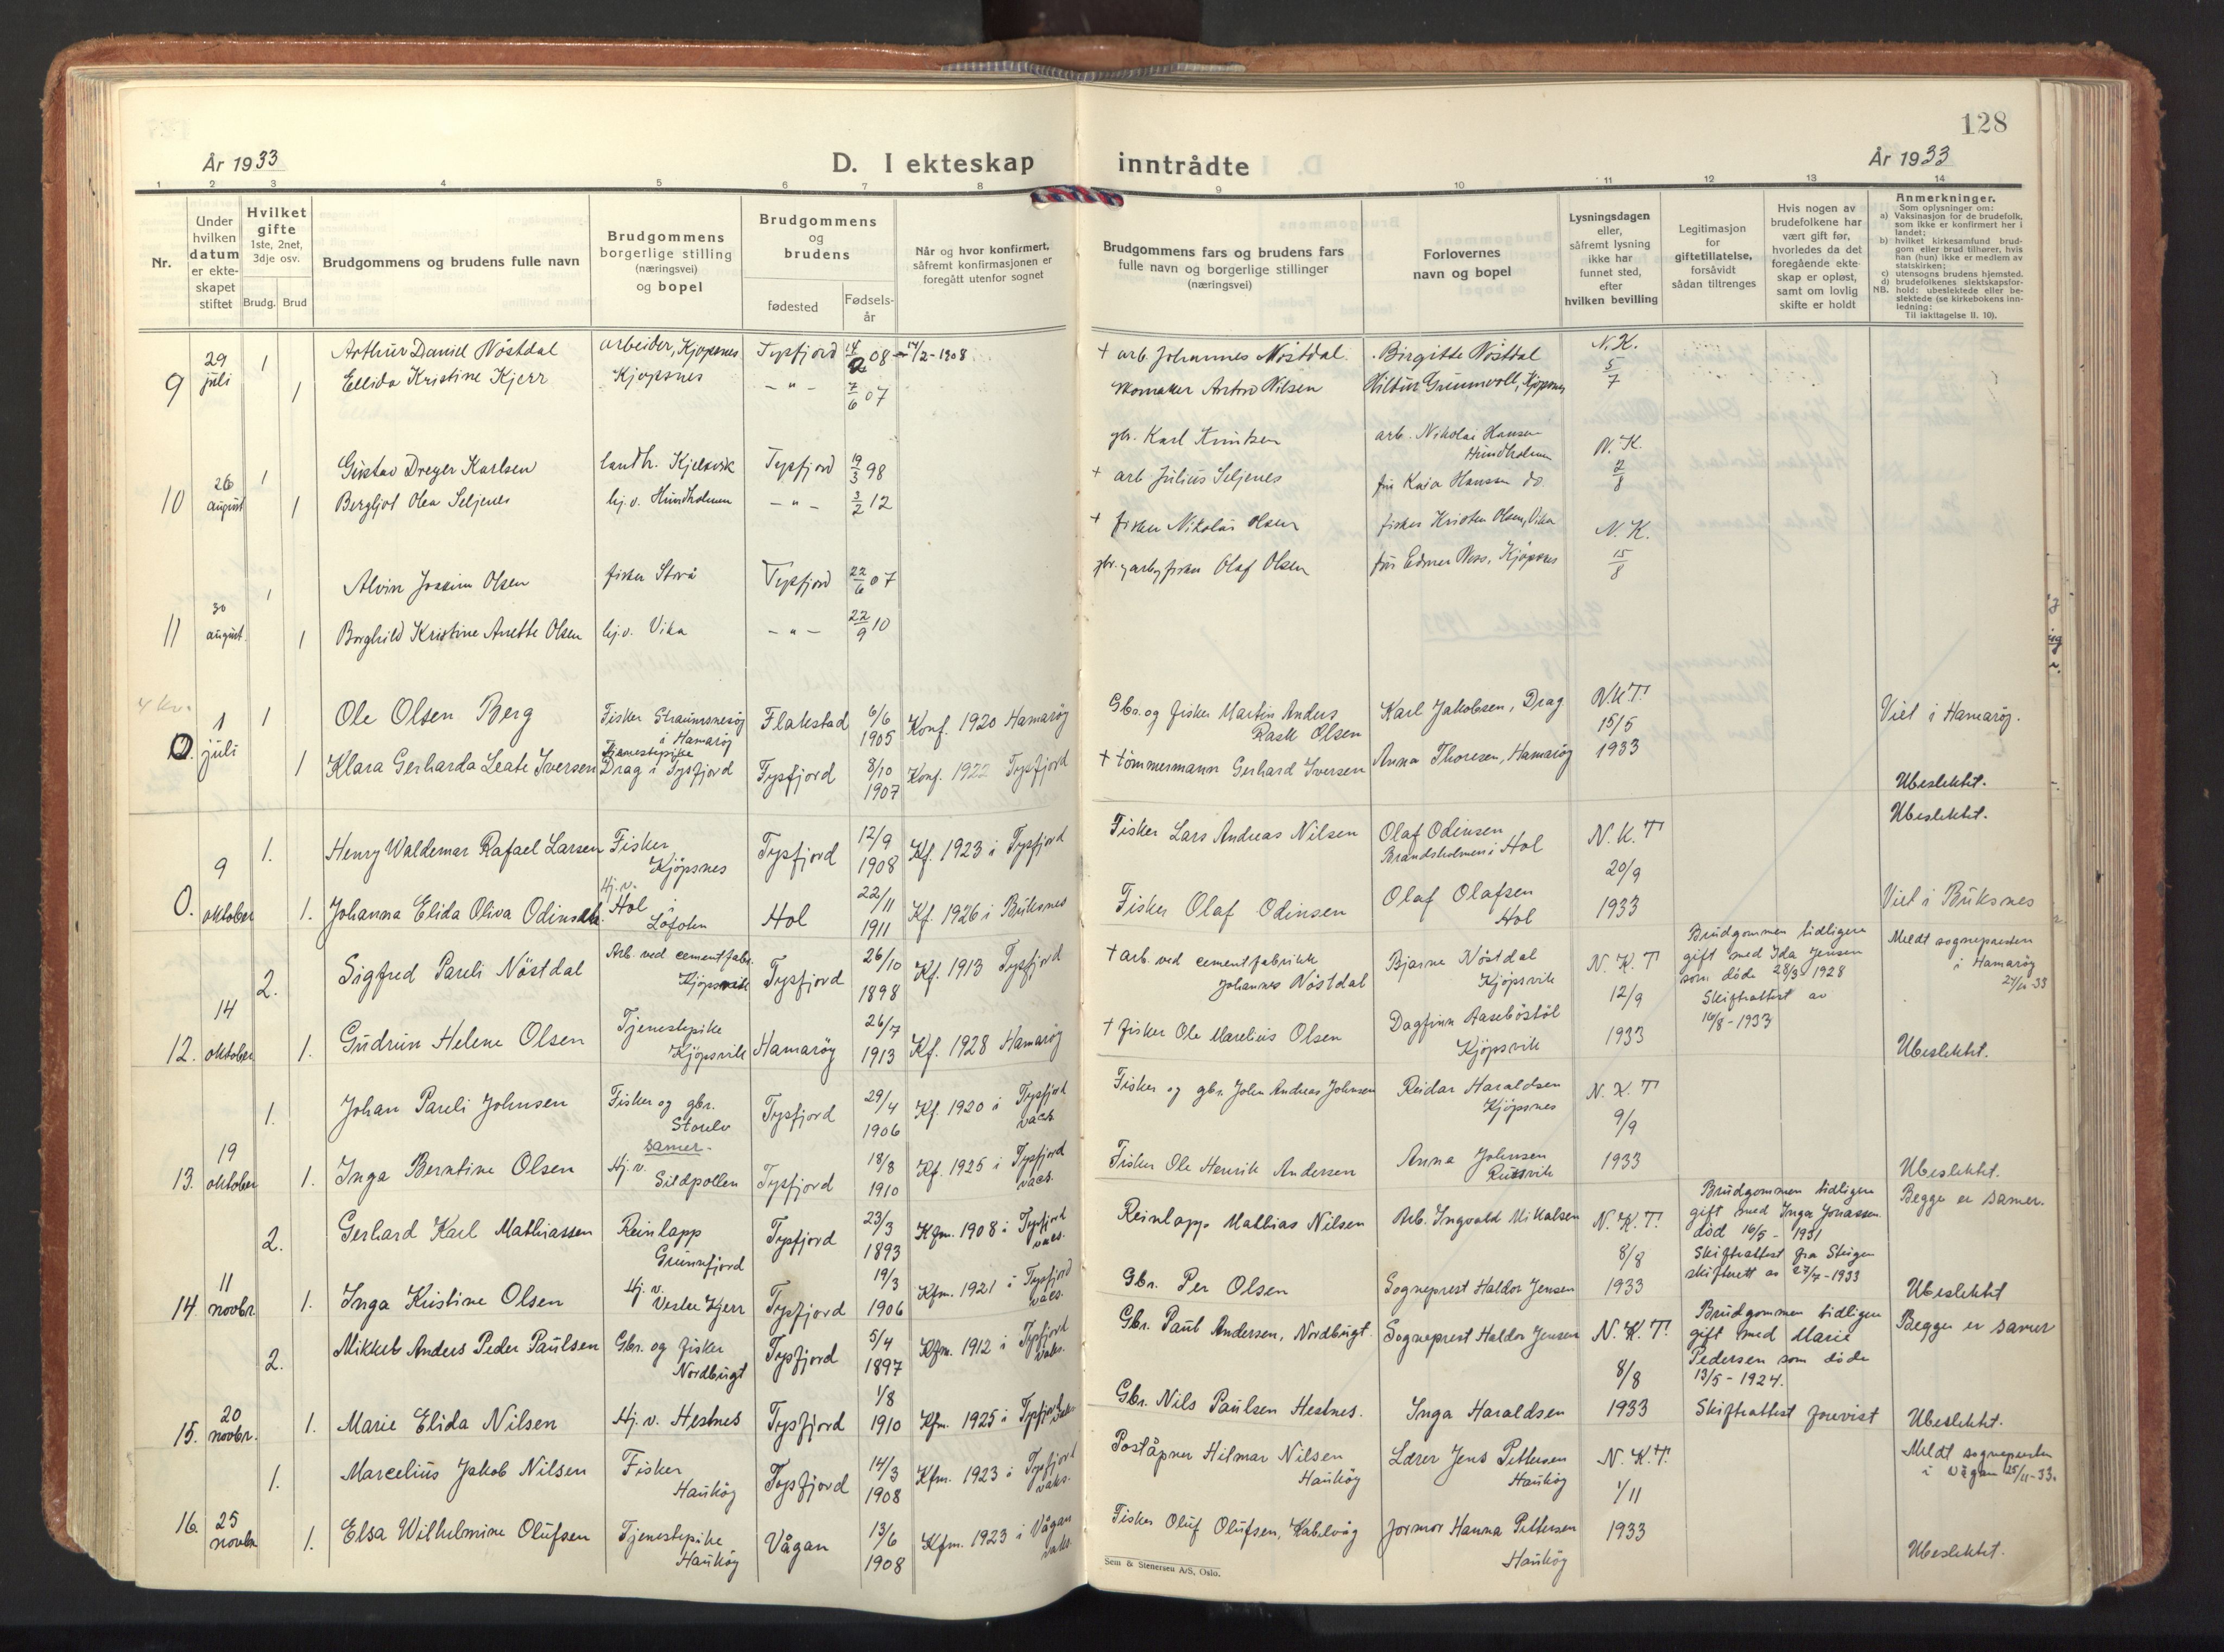 128
År 1933
D. I ekteskap inntrådte
År 1933
1 2 3 4 5 6 7 8 9 10 11 12 13 14
Nr.
Under hvilken datum er ekteskapet stiftet
Hvilket gifte 1ste, 2net, 3dje osv.
Brudg. Brud
Brudgommens og brudens fulle navn
Brudgommens borgerlige stilling (næringsvei) og bopel
Brudgommens og brudens
fødested
Fødselsår
Når og hvor konfirmert, såfremt konfirmasjonen er foregått utenfor sognet
Brudgommens fars og brudens fars fulle navn og borgerlige stillinger (næringsvei)
Forlovernes navn og bopel
Lysningsdagen eller, såfremt lysning ikke har funnet sted, efter hvilken bevilling
Legitimasjon for giftetillatelse, forsåvidt sådan tiltrenges
Hvis nogen av brudefolkene har vært gift før, hvorledes da det foregående ekteskap er opløst, samt om lovlig skifte er holdt
Anmerkninger.
Som oplysninger om:
a) Vaksinasjon for de brudefolk, som ikke er konfirmert her i landet;
b) hvilket kirkesamfund brudgom eller brud tilhører, hvis han (hun) ikke er medlem av statskirken;
c) utensogns brudens hjemsted.
d) brudefolkenes slektskapsforhold: ubeslektede eller beslektede (se kirkebokens innledning:
NB.
Til iakttagelse II. 10).
9 29 juli 1 Arthur Daniel Nöstdal arbeider, Kjøpsnes Tysfjord 08 14/2-1908 + arb. Johannes Nöstdal. Birgitte Nöstdal N.K. 5/7
1 Ellida Kristine Kjerr Kjøpsnes - " - 7/6 07 skomaker Anton Nilsen Kjøpsnes
10 26 august 1 Gustav Dreyer Karlsen landh. Kjelvik Tysfjord 19/3 98 gbr. Karl Knutsen arb. Nikolai Hansen Hundholmen N.K. 2/8
1 Bergljot Olea Seljenes hj.v. Hundholmen - " - 3/2 12 + arb Julius Seljenes fru Kaia Hanssen do
11 30 august 1 Alvin Joakim Olsen fisker Storå Tysfjord 22/6 07 + fisker Nikolai Olsen fisker Kristen Olsen, Vika N.K. 15/8
1 Borghild Kristine Anette Olsen hj.v. Vika - " - 22/9 10 fisker Olaf Olsen fru Kjöpsnes
0. 1 juli 1 Ole Olsen Berg Fisker Straumsnesøg i Hamarøy Flakstad 6/6 1905 Konf. 1920 Hamarøy Gbr. og fisker Martin Anders Rask Olsen Karl Jakobsen, Drag N.K.T. 15/5 1933 Viet i Hamarøy.
1 Klara Gerharda Leate Iversen Tjenestepike Drag i Tysfjord Tysfjord 8/10 1907 Konf. 1922 Tysfjord + tömmermann Gerhard Iversen Anna Thoresen, Hamarøy Ubeslektet.
0. 9 oktober 1. Henry Waldemar Rafael Larsen Fisker Kjöpsnes Tysfjord 12/9 1908 Kf. 1923 i Tysfjord Fisker Lars Andreas Nilsen Olaf Odinsen Brandsholmen i Hol N.K.T 20/9 1933 Ubeslektet.
1. Johanna Elida Oliva Odinsen. Hj.v. Hol i Lofoten Hol 22/11 1911 Kf. 1926 i Buksnes Fisker Olaf Odinsen Olaf Olafsen Hol Viet i Buksnes
12. 14 oktober 2. Sigfred Pareli Nöstdal Arb. ved cementfabr. Kjöpsvik Tysfjord 26/10 1898 Kf. 1913 Tysfjord + arb. ved cementfabrikk Johannes Nöstdal Bjarne Nöstdal Kjöpsvik N.K.T 12/9 1933 Brudgommen tidligere gift med Ida Jensen som döde 28/3 1928 Skifteattest av 16/8-1933 Meldt sognepresten i Hamarøy 27/11-33
1. Gudrun Helene Olsen Tjenestepike Kjöpsvik Hamarøy 26/7 1913 Kf. 1928 Hamarøy + fisker Ole Marelius Olsen Dagfinn Aaseböstöl Kjöpsvik Ubeslektet.
13. 19 oktober 1. Johan Pareli Johnsen Fisker og gbr. Storelv Tysfjord 29/4 1906 Kf. 1920 i Tysfjord vacs. Fisker og gbr. John Andreas Johnsen Reidar Haraldsen Kjöpsnes N.K.T 9/9 1933
samer.
1. Inga Berntine Olsen Hj.v. Sildpollen Tysfjord 18/8 1910 Kf. 1925 i Tysfjord vacs. Fisker Ole Henrik Andersen Anna Johnsen Ubeslektet.
14. 11 novbr. 2. Gerhard Karl Mathiassen Reinlapp Grunnfjord Tysfjord 23/3 1893 Kfm. 1908 i Tysfjord vacs. Reinlapp Mathias Nilsen Arb. Ingvald Mikalsen N.K.T. 8/8 1933 Brudgommen tidligere gift med Inga Jonassen. död 16/5-1931 Skifteattest fra Steigen skifterett av 27/7-1933 Begge er samer.
1. Inga Kristine Olsen Hj.v. Vestre Kjerr Tysfjord 19/3 1906 Kfm. 1921 i Tysfjord vacs. Gbr. Per Olsen Sogneprest Haldor Jensen Ubeslektet
15. 20 novbr. 2. Mikkel Anders Peder Paulsen Gbr. og fisker Nordbugt Tysfjord 5/4 1897 Kfm. 1912 i Tysfjord vaks. Gbr. Paul Andersen, Nordbugt. Sogneprest Haldor Jensen N.K.T. 8/8 1933 Brudgommen tidligere gift med Marie Pedersen som döde 13/5-1924. Skifteattest forevist Begge er samer
1. Marie Elida Nilsen Hj.v. Hestnes Tysfjord 1/8 1910 Kfm. 1925 i Tysfjord Gbr. Nils Paulsen Hestnes. Inga Haraldsen Ubeslektet.
16. 25 novbr 1. Marcelius Jakob Nilsen Fisker Haukøy Tysfjord 14/3 1908 Kfm. 1923 i Tysfjord vaks. Poståpner Hilmar Nilsen Haukøy Lærer Jens Pettersen Haukøy N.K.T. 1/11 1933 Meldt sognepresten i Vågan 25/11-33.
1. Elsa Wilhelmine Olufsen Tjenestepike Haukøy Vågan 13/6 1908 Kfm. 1923 i Vågan vaks. Fisker Oluf Olufsen, Kabelvåg Jormor Hanna Pettersen Haukøy Ubeslektet.
Sem & Stenersen A/S, Oslo.